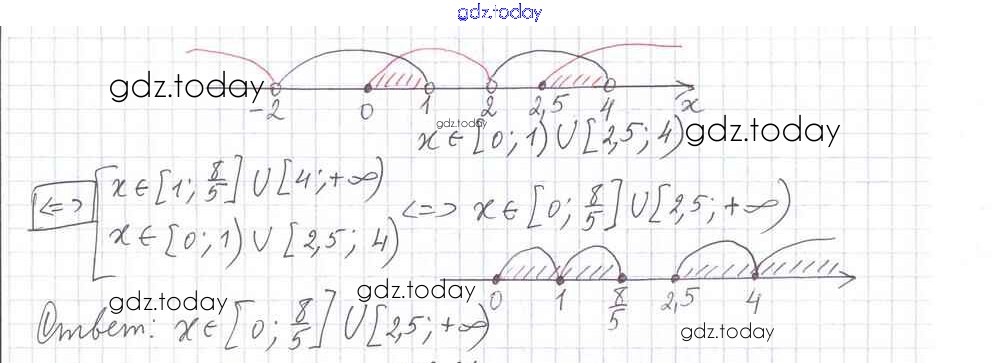 gdz.today
gdz.today
-2 0 1 2 2,5 4 x
gdz.today
x ∈ [0; 1) ∪ [2,5; 4)
gdz.today
<=> [ x ∈ [1; 8/5] ∪ [4; +∞)
x ∈ [0; 1) ∪ [2,5; 4)
<=> x ∈ [0; 8/5] ∪ [2,5; +∞)
0 1 8/5 2,5 4
gdz.today
gdz.today
gdz.today
Ответ: x ∈ [0; 8/5] ∪ [2,5; +∞)